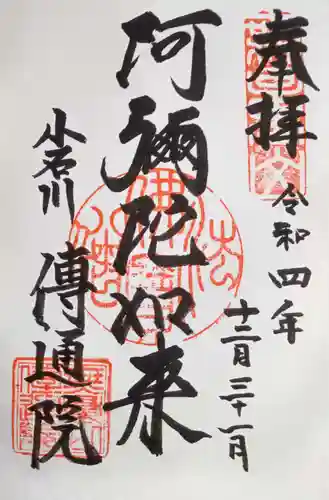 奉拝
令和四年
十二月三十一日
阿彌陀如来
小石川
傳通院